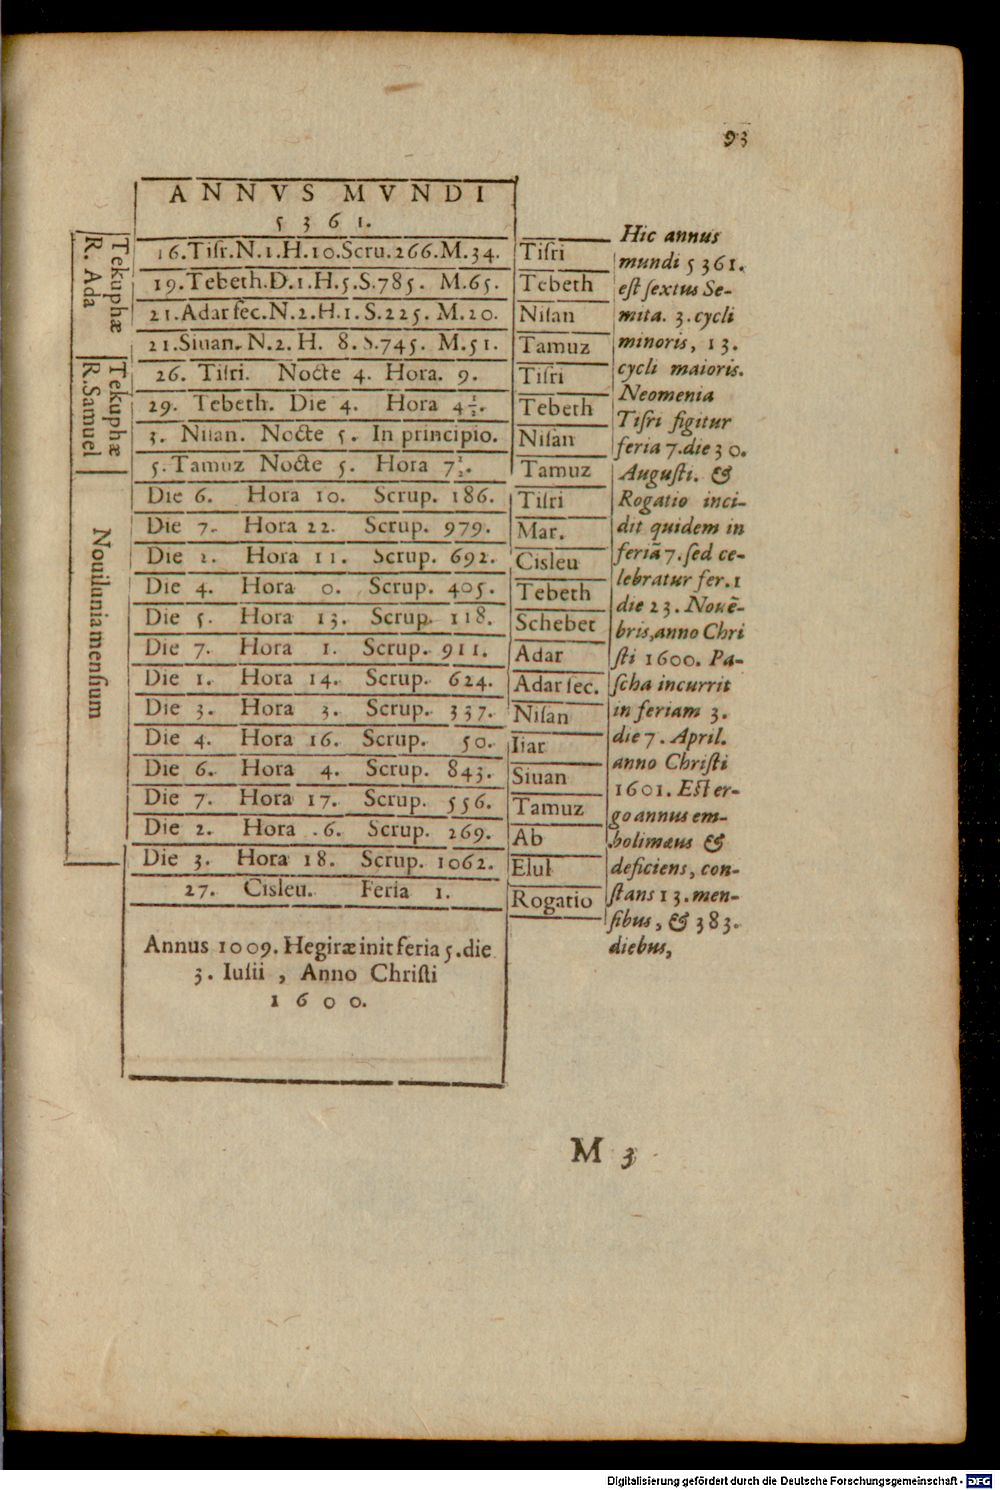 93
ANNVS MVNDI
5361.
Tekuphæ
R. Ada
16.Tiſr.N.1.H.10.Scru.266.M.34. Tiſri
19.Tebeth.D.1.H.5.S.785. M.65. Tebeth
21.Adar ſec.N.2.H.1.S.225. M.20. Niſan
21.Siuan.N.2.H. 8.S.745. M.51. Tamuz
Tekuphæ
R.Samuel
26. Tiſri. Nocte 4. Hora. 9. Tiſri
29. Tebeth. Die 4. Hora 4½. Tebeth
3. Niſan. Nocte 5. In principio. Niſan
5.Tamuz Nocte 5. Hora 7½. Tamuz
Nouilunia menſium
Die 6. Hora 10. Scrup. 186. Tiſri
Die 7. Hora 22. Scrup. 979. Mar.
Die 2. Hora 11. Scrup. 692. Cisleu
Die 4. Hora 0. Scrup. 405. Tebeth
Die 5. Hora 13. Scrup. 118. Schebet
Die 7. Hora 1. Scrup. 911. Adar
Die 1. Hora 14. Scrup. 624. Adar ſec.
Die 3. Hora 3. Scrup. 337. Niſan
Die 4. Hora 16. Scrup. 50. Iiar
Die 6. Hora 4. Scrup. 843. Siuan
Die 7. Hora 17. Scrup. 556. Tamuz
Die 2. Hora .6. Scrup. 269. Ab
Die 3. Hora 18. Scrup. 1062. Elul
27. Cisleu. Feria 1. Rogatio
Annus 1009. Hegiræ init feria 5.die
3. Iulii , Anno Chriſti
1600.
Hic annus
mundi 5361.
eſt ſextus Se-
mita. 3. cycli
minoris, 13.
cycli maioris.
Neomenia
Tiſri figitur
feria 7.die 30.
Auguſti. &
Rogatio inci-
dit quidem in
feriā 7. ſed ce-
lebratur fer.1
die 23. Nouē-
bris,anno Chri
ſti 1600. Pa-
ſcha incurrit
in feriam 3.
die 7. April.
anno Chriſti
1601. Eſt er-
go annus em-
bolimæus &
deficiens, con-
ſtans 13. men-
ſibus, & 383.
diebus,
M 3
Digitalisierung gefördert durch die Deutsche Forschungsgemeinschaft - DFG